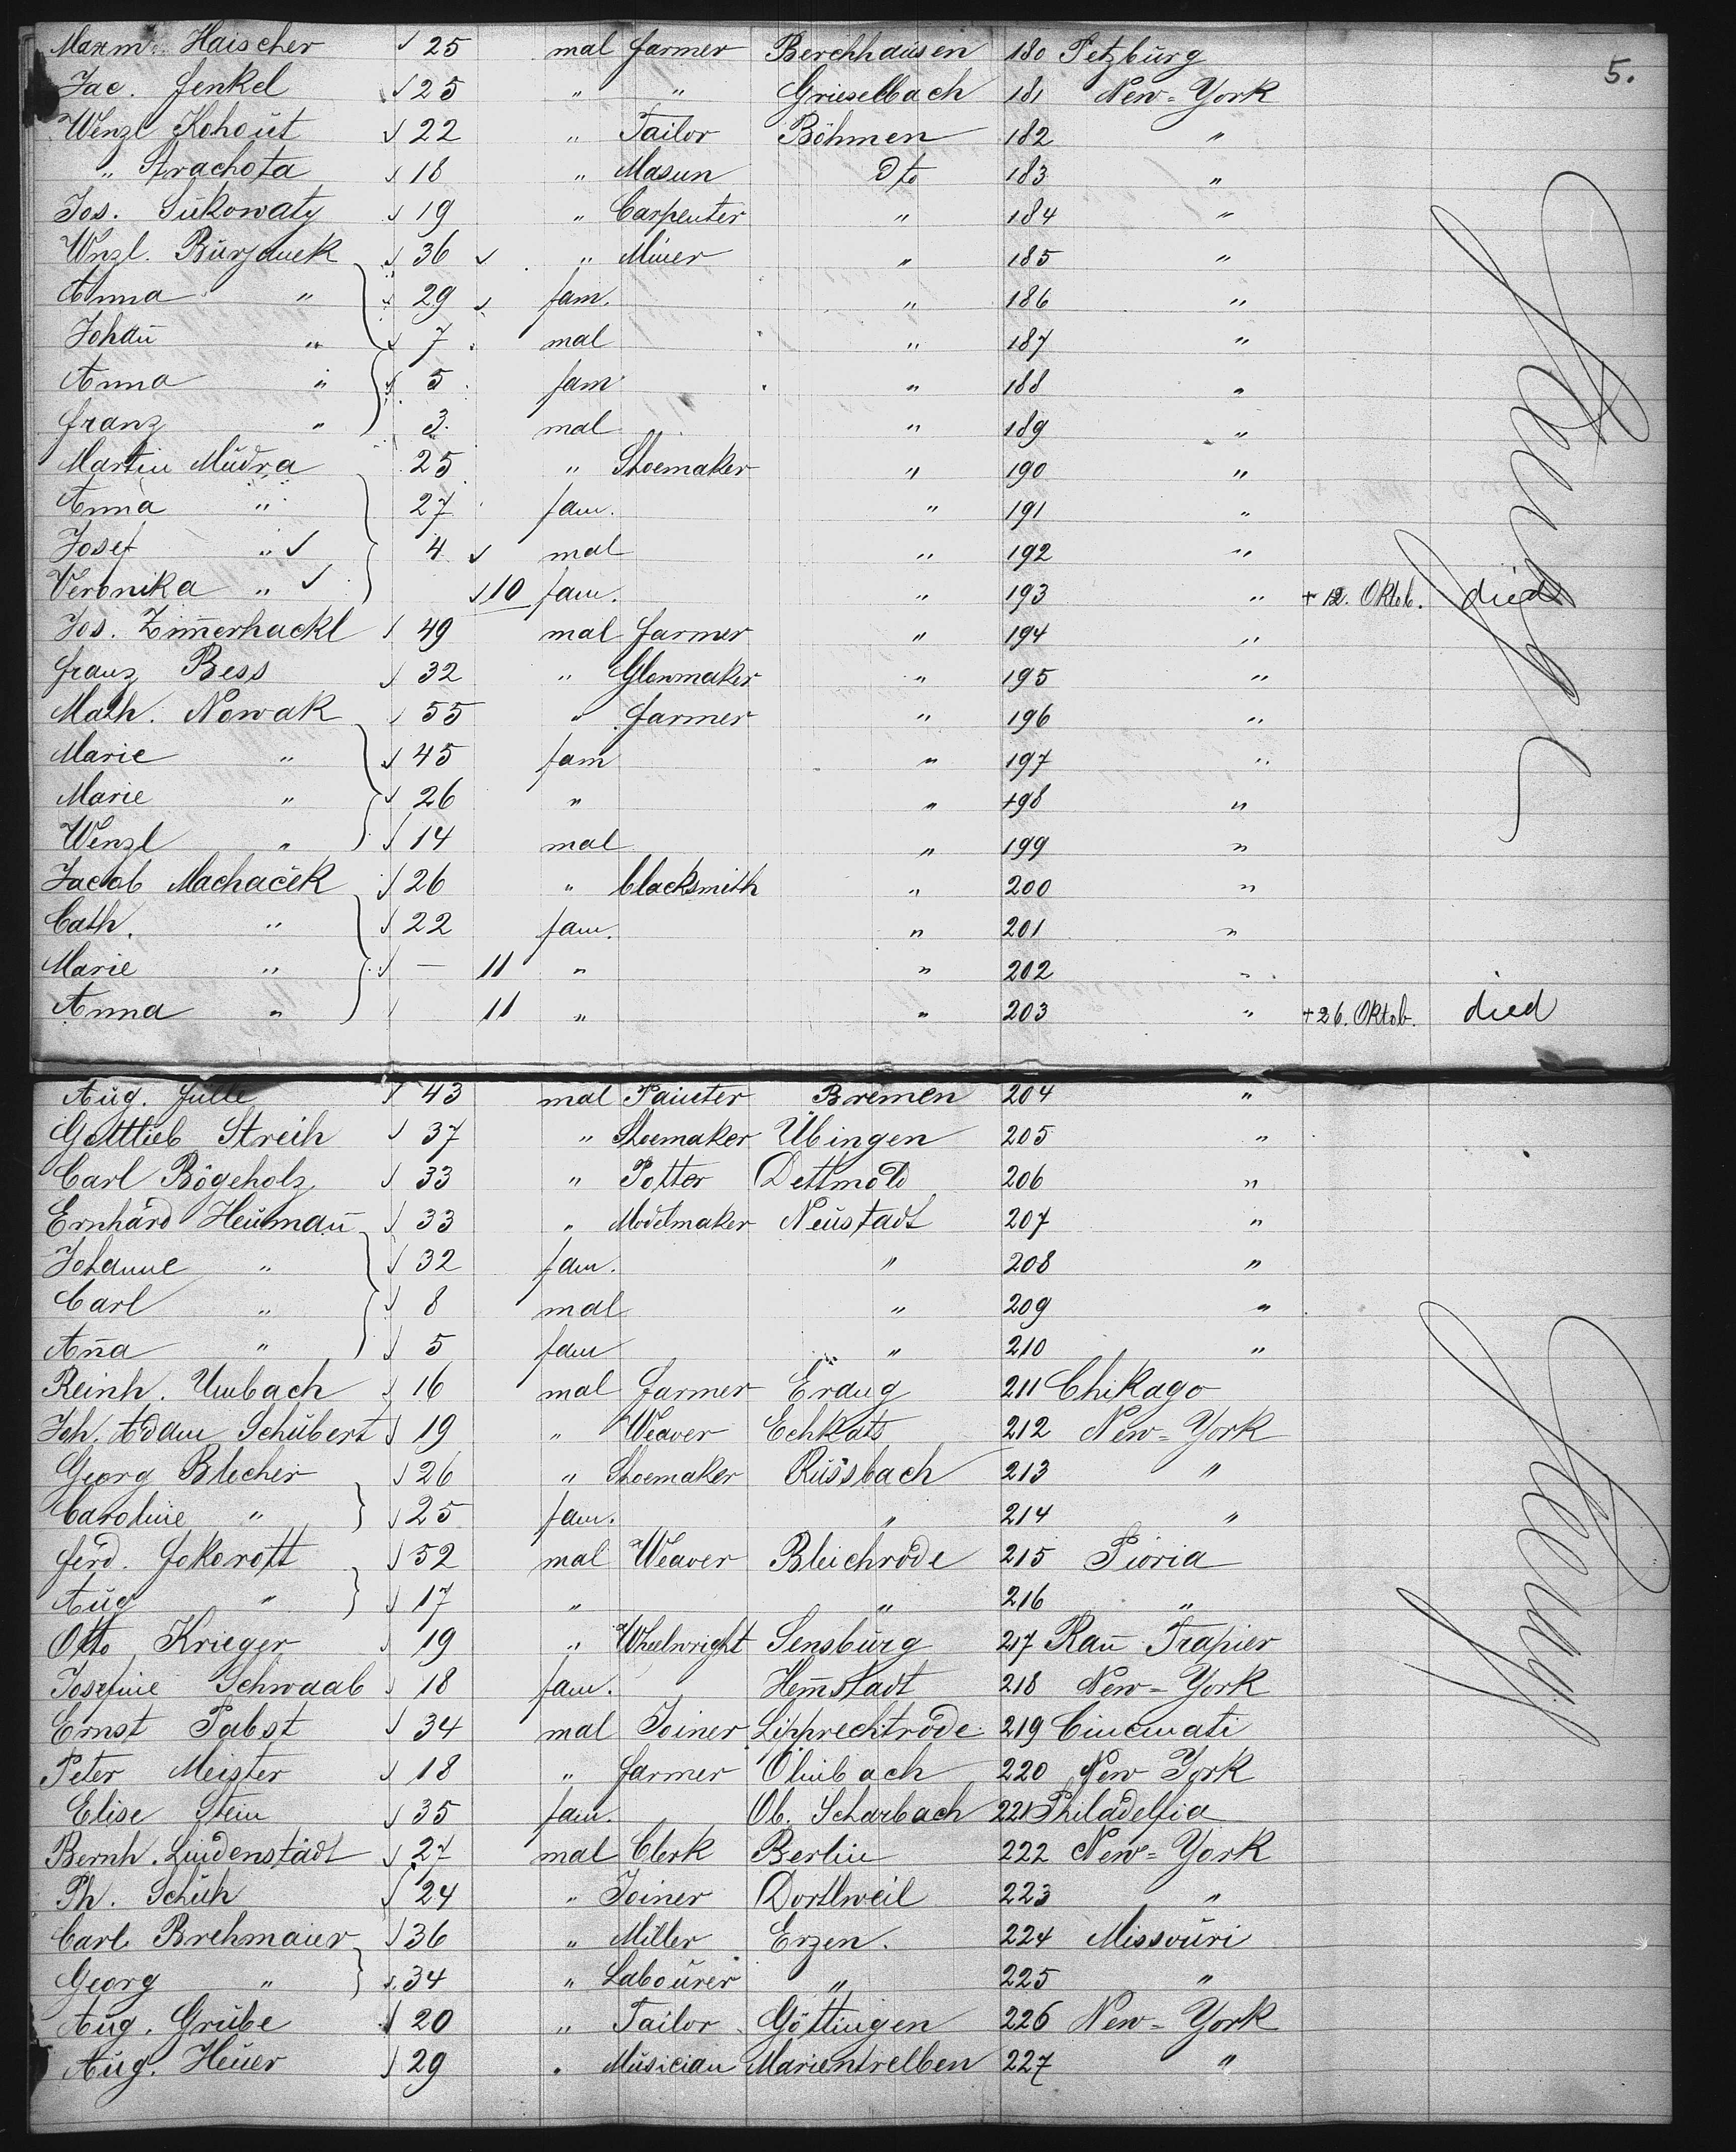 5.
Maxm. Haischer 25 mal farmer Berchhausen 180 Petzburg
Jac. Henkel 25 " " Grieselbach 181 New-York
Wenzl Kohout 22 " Tailor Böhmen 182 "
" Strachota 18 " Masun dto 183 "
Jos. Sukowaty 19 " Carpenter " 184 "
Wnzl. 36 " Miner " 185 "
Anna " 29 fam. " 186 "
Johan̄ " 7 mal " 187 "
Anna " 5 fam " 188 "
Franz " 3 mal " 189 "
Martin Mudra 25 " Shoemaker " 190 "
Anna " 27 fam. " 191 "
Josef " 4 mal " 192 "
Veronika " 10 fam. " 193 " + 12. Oktob. died
Jos. Zim̄erhackl 49 mal farmer " 194 "
Franz Bess 32 " " 195 "
Math. Nowak 55 " farmer " 196 "
Marie " 45 fam " 197 "
Marie " 26 " " 198 "
Wenzl " 14 mal " 199 "
Jacob Machaček 26 " blacksmith " 200 "
Cath. " 22 fam. " 201 "
Marie " — 11 " " 202 "
Anna " 11 " " 203 " + 26. Oktob. died
Aug. Jülle 43 mal Painter Bremen 204 "
Gottlieb Streih 37 " Shoemaker Übingen 205 "
Carl Bögeholz 33 " Potter Dettmold 206 "
Ernhard Heuman̄ 33 " Modelmaker Neustadt 207 "
Johanne " 32 fam. " 208 "
Carl " 8 mal " 209 "
An̄a " 5 fam " 210 "
Reinh. Umbach 16 mal farmer 211 Chikago
Joh. Adam Schubert 19 " Weaver Echkats 212 New-York
Georg Blecher 26 " Shoemaker Russbach 213 "
Caroline " 25 fam. " 214 "
Ferd. Jokorott 52 mal Weaver Bleichrode 215 Pioria
Aug " 17 " " 216 "
Otto Krieger 19 " Wheelwright Sensburg 217 Rau̅ Trapier
Josefine Schwaab 18 fam. Hem̄stadt 218 New-York
Ernst Pabst 34 mal Joiner Lipprechtrode 219 Cincinati
Peter Meister 18 " farmer Olmbach 220 New York
Elise Stein 35 fam. Ob. Scharbach 221 Philadelfia
Bernh. Lindenstädt 27 mal Clerk Berlin 222 New-York
Ph. Schuh 24 " Joiner Dortlweil 223 "
Carl Brehmaier 36 " Miller Erzen. 224 Missouri
Georg " 34 " Labourer " 225 "
Aug. Grube 20 " Tailor Göttingen 226 New-York
Aug. Heuer 29 " Musician Marientrelben 227 "